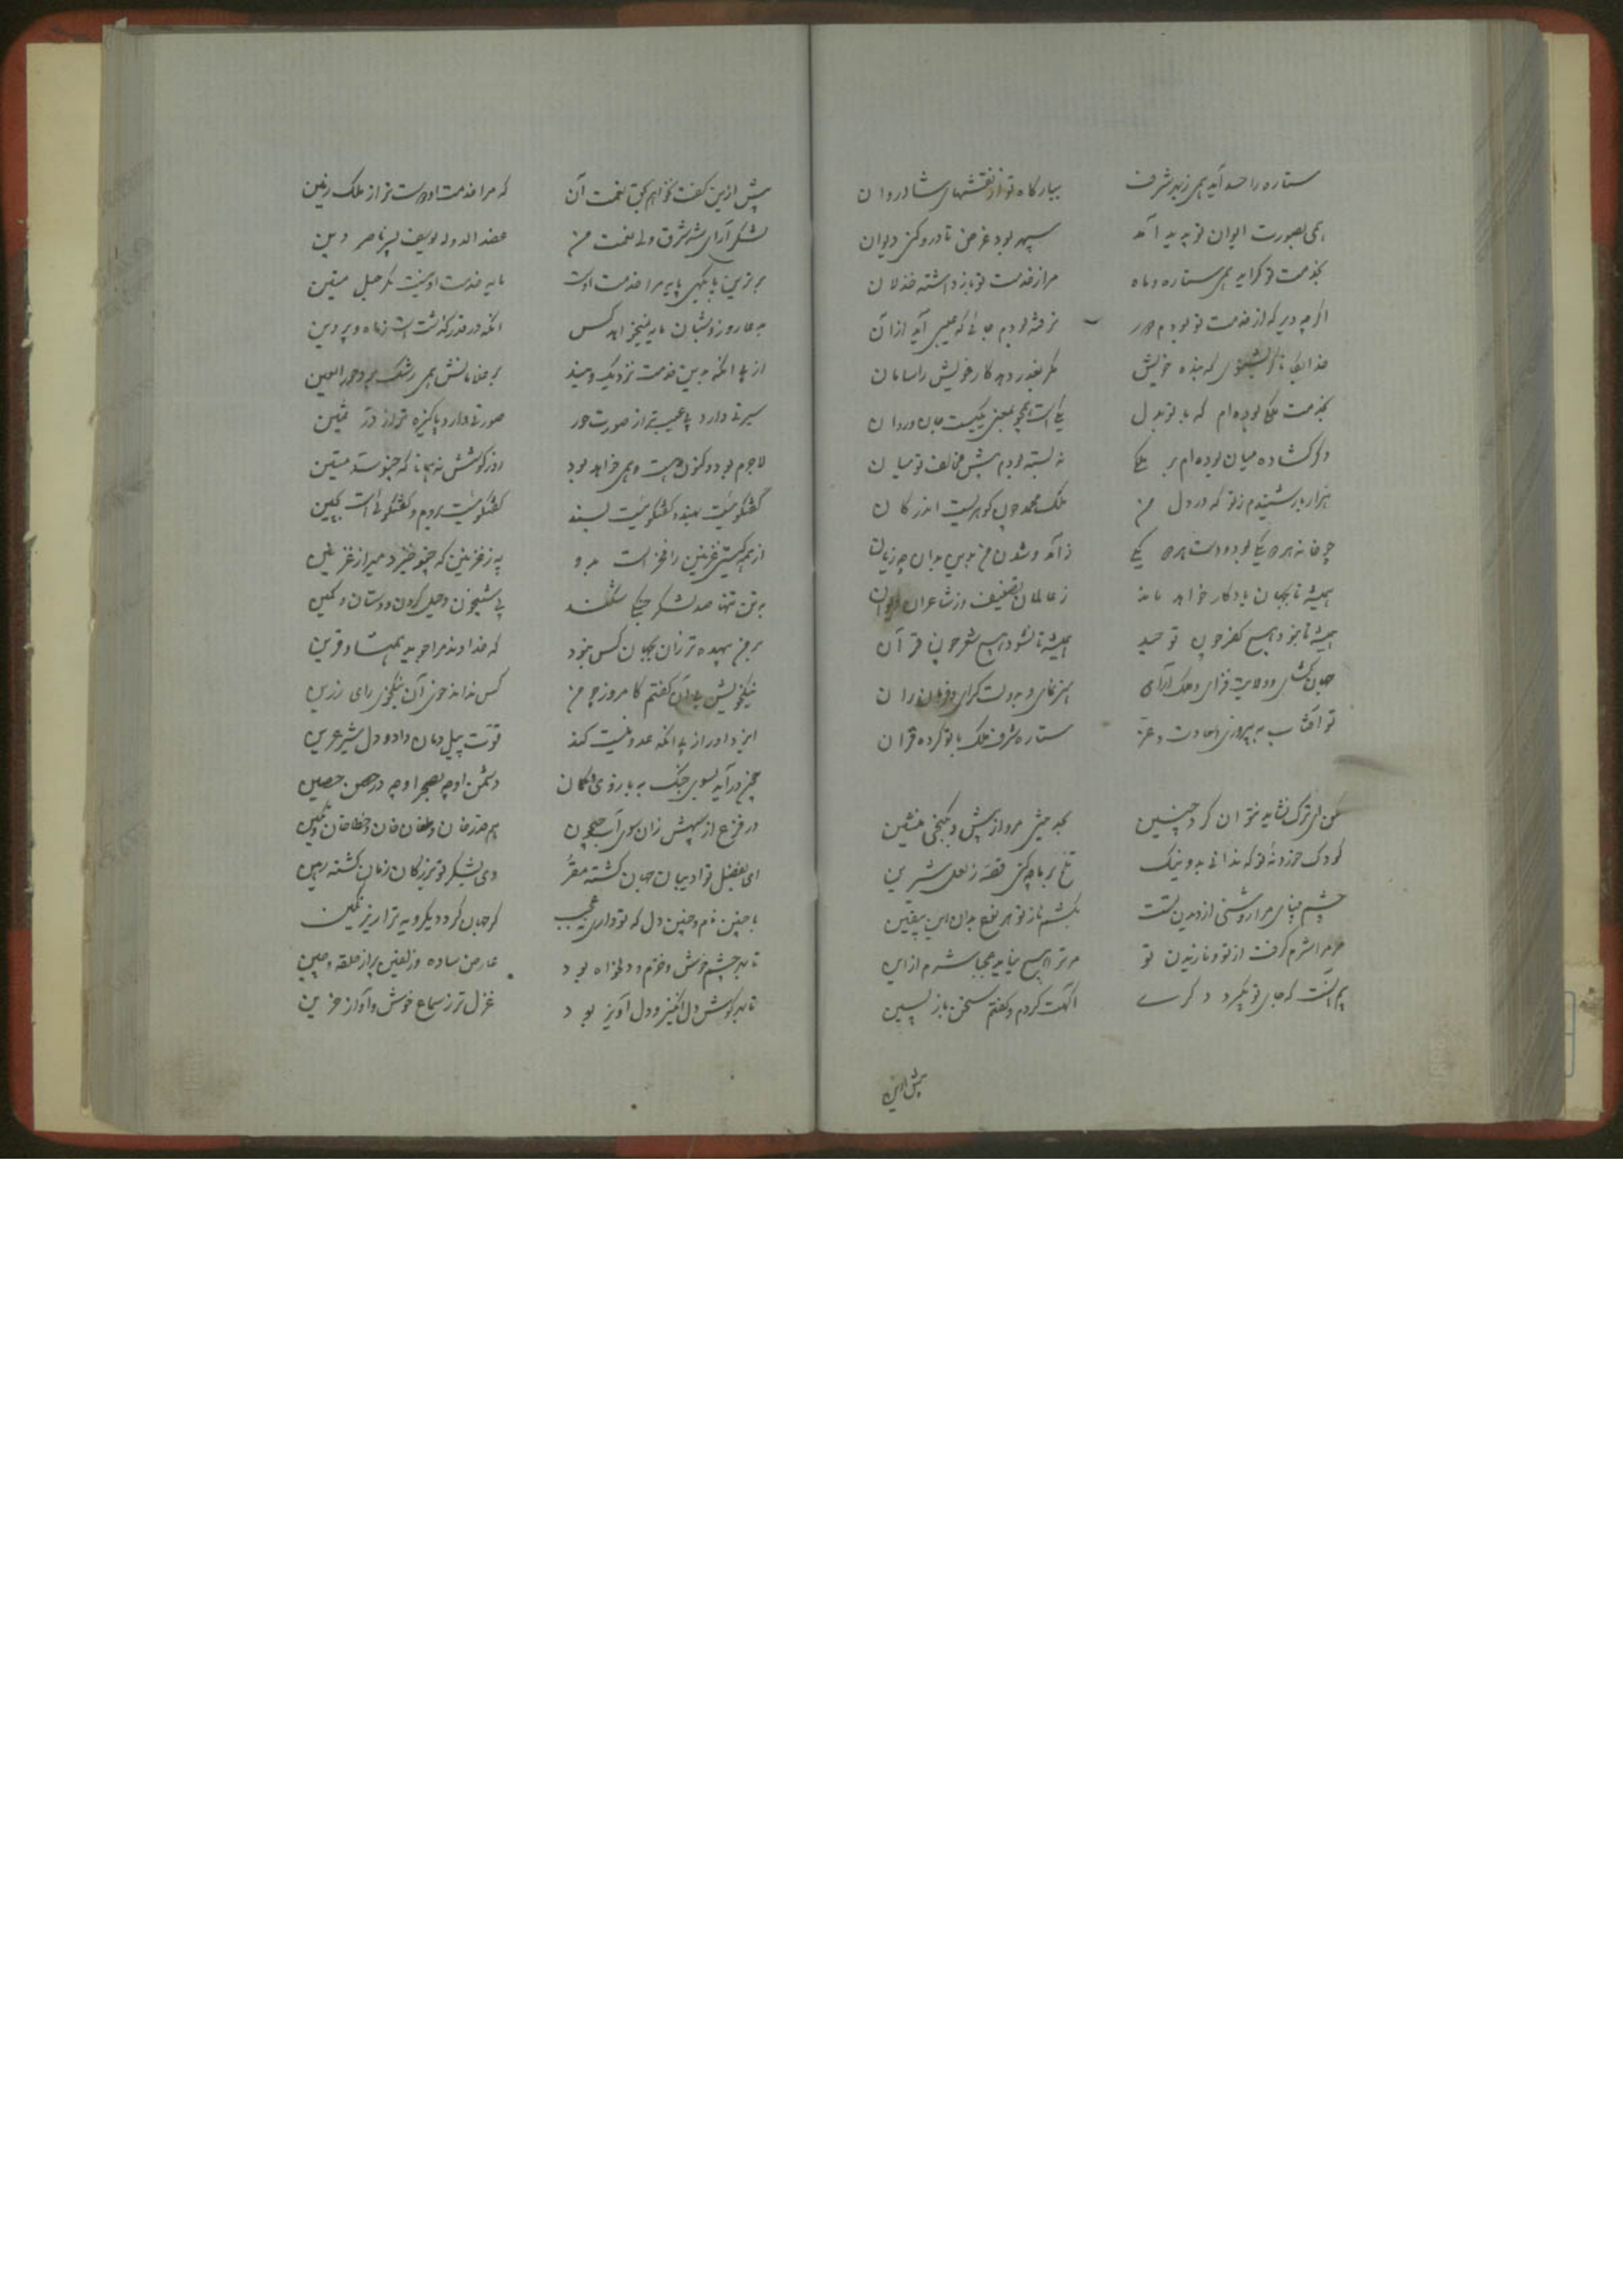 ستاره را حسد آید همی زبهر شرف ببارگاه تو از نقشهای شادروان
همی بصورت ایوان تو پدید آمد سپهر بود غرض تا درو کنی دیوان
بخدمت تو گراید همی ستاره و ماه مرا ز خدمت تو باز داشته خذلان
اگرچه دیر که از خدمت تو بودم دور نرفته بودم جائی که عیبی آید ازان
خدایگانا که بنده خویش مگر بعذر دهد کار خویش را سامان
بخدمت ملکی بوده‌ام که با تو بدل یکی است همچو بمعنی یکیست جان و روان
وگر گشاده میان بوده‌ام بر ملکا نه بسته بودم پیش مخالف تو میان
هزار بار شنیدم ز تو که در دل من ملک محمد چون گوهریست اندر کان
چو خانه هردو یکی بود و دوست هردو یکی ز آمد و شدن من بدین بدان چه زیان
همیشه تا بجهان یادگار خواهد ماند ز عالمان تصنیف وز شاعران دیوان
همیشه تا نبود هیچ کفر چون توحید همیشه تا نشود هیچ شعر چون قرآن
جهان گشای و ولایت فزای و ملک آرای هنر نمای و بدولت گرای و فرمان ران
تو آفتاب به پیروزی و سعادت و عز ستاره شرف ملک با تو کرده قران
مکن ای ترک نشاید نتوان کرد چنین بجدمنشی مرو از پیش و بکنجی منشین
کودک خردی تو که ندانی بد و نیک تلخ بر ما چه کنی قصه ز لعل شیرین
چشم بینای مرا روشنی از دیدن تست بکشم ناز تو هر نوع بدان این بیقین
مر مرا شرم گرفت از تو و نازیدن تو مر ترا هیچ نیاید عجبا شرم ازین
بیم آنست که جای تو بگیرد دگری آگهت کردم و گفتم سخن باز پسین
پیش ازین
پیش ازین گفت نخواهم بحق نعمت آن که مرا خدمت او دوست‌تر از ملک زمین
لشکر آرای شه شرق ولی نعمت من عضد الدوله یوسف پسر ناصر دین
برترین پایگهی پایه مرا خدمت اوست پایه خدمت او نیست مگر حبل متین
بدعا روز و شبان پایه نمیخواهد کس آنکه در قدر گذشت است ز ماه و پروین
از پی آنکه بدین خدمت نزدیک رسید بر غلامانش همی رشک برد حور العین
سیرتی دارد بی عیب‌تر از صورت حور صورتی دارد پاکیزه‌تر از در ثمین
لاجرم بود و کنون هست و همی خواهد بود روز کوشش نه همانا که چنو شیر عرین
گفتگوئیست بهند و گفتگوئیست بسند گفتگوئیست بروم و گفتگوئی است بچین
از همه گیتی غزنین را فخر است بدو به ز غزنین که چنو خیزد میر از غزنین
به تن تنها صد لشکر جنگی شکند بی شبیخون و حیل کردن و دستان و کمین
بر من بیهده‌تر زان بجهان کس نبود که خداوند مرا جوید همتا و قرین
نیکخوئیش بدان گفتم کامروز چو من کس نداند خوی آن نیکخوی رای رزین
ایزد او را ز پی آنکه عدو نیست کند قوت پیل دمان داد و دل شیر عرین
چون در آید بسوی جنگ به بازوی و کمان دشمن او چه بصحرا و چه در حصن حصین
در فزع از سپهش زان سوی آب جیحون هم قدرخان و طغان خان و ختاخان و تکین
ای بفضل تو ادیبان جهان گشته مقر وی بشکر تو بزرگان زمان گشته رهین
با چنین نام و چنین دل که تو داری نه عجب گر جهان گردد یکرویه ترا زیر نگین
تا بر چشم خوش و خرم و دلخواه بود عارض ساده و زلفین پر از حلقه و چین
تا بر گوش دل انگیز و دل آویز بود غزل تر ز سماع خوش و آواز حزین